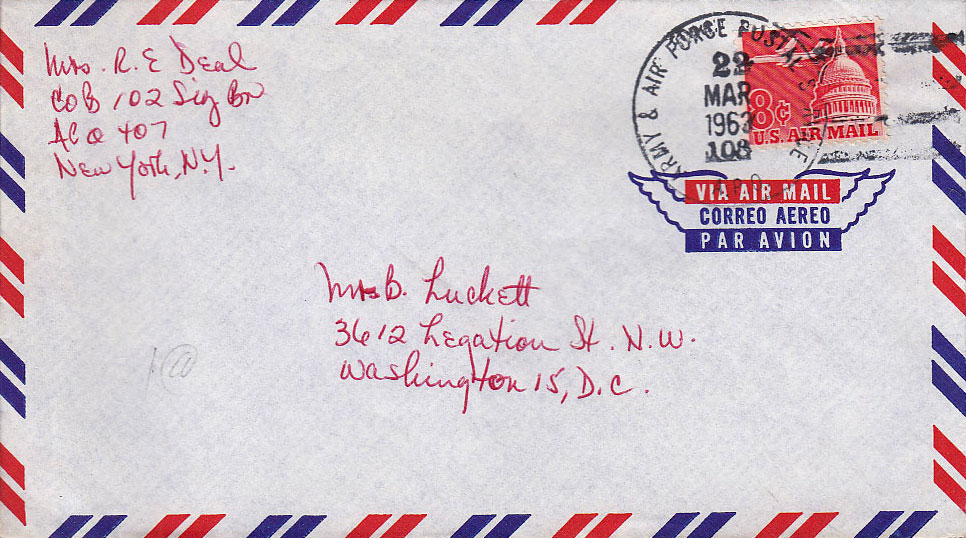 Mrs. R. E Deal
CoB 102 Sig Bn
APO 407
New York, N.Y.
ARMY & AIR FORCE POSTAL SERVICE
22
MAR
1963
APO
8¢
U.S. AIR MAIL
VIA AIR MAIL
CORREO AEREO
PAR AVION
Mrs B. Luckett
3612 Legation St. N.W.
Washington 15, D.C.